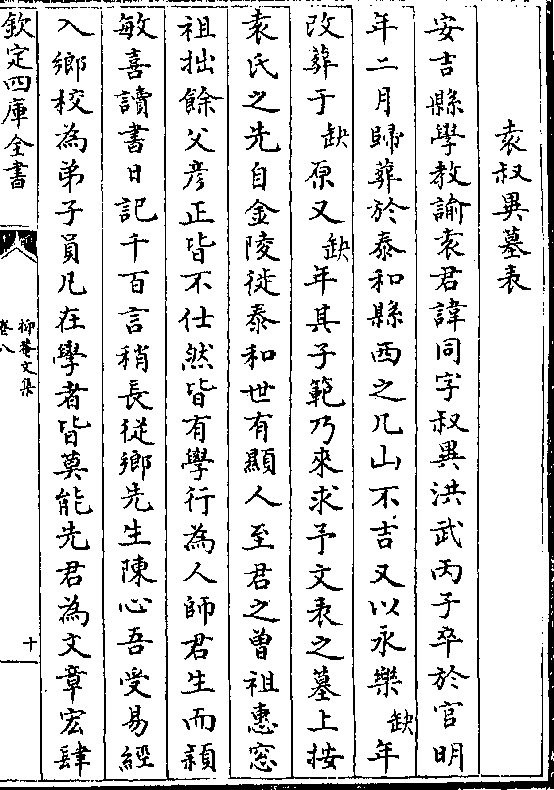 袁叔異墓表
安吉縣學教諭袁君諱同字叔異洪武丙子卒於官明
年二月歸葬於泰和縣西之几山不吉又以永樂缺年
改葬于缺原又缺年其子範乃來求予文表之墓上按
袁氏之先自金陵徙泰和世有顯人至君之曽祖惠窓
祖拙餘父彦正皆不仕然皆有學行為人師君生而穎
敏喜讀書日記千百言稍長從鄉先生陳心吾受易經
入鄉校為弟子員凡在學者皆莫能先君為文章宏肆
欽定四庫全書
抑菴文集
卷八
十